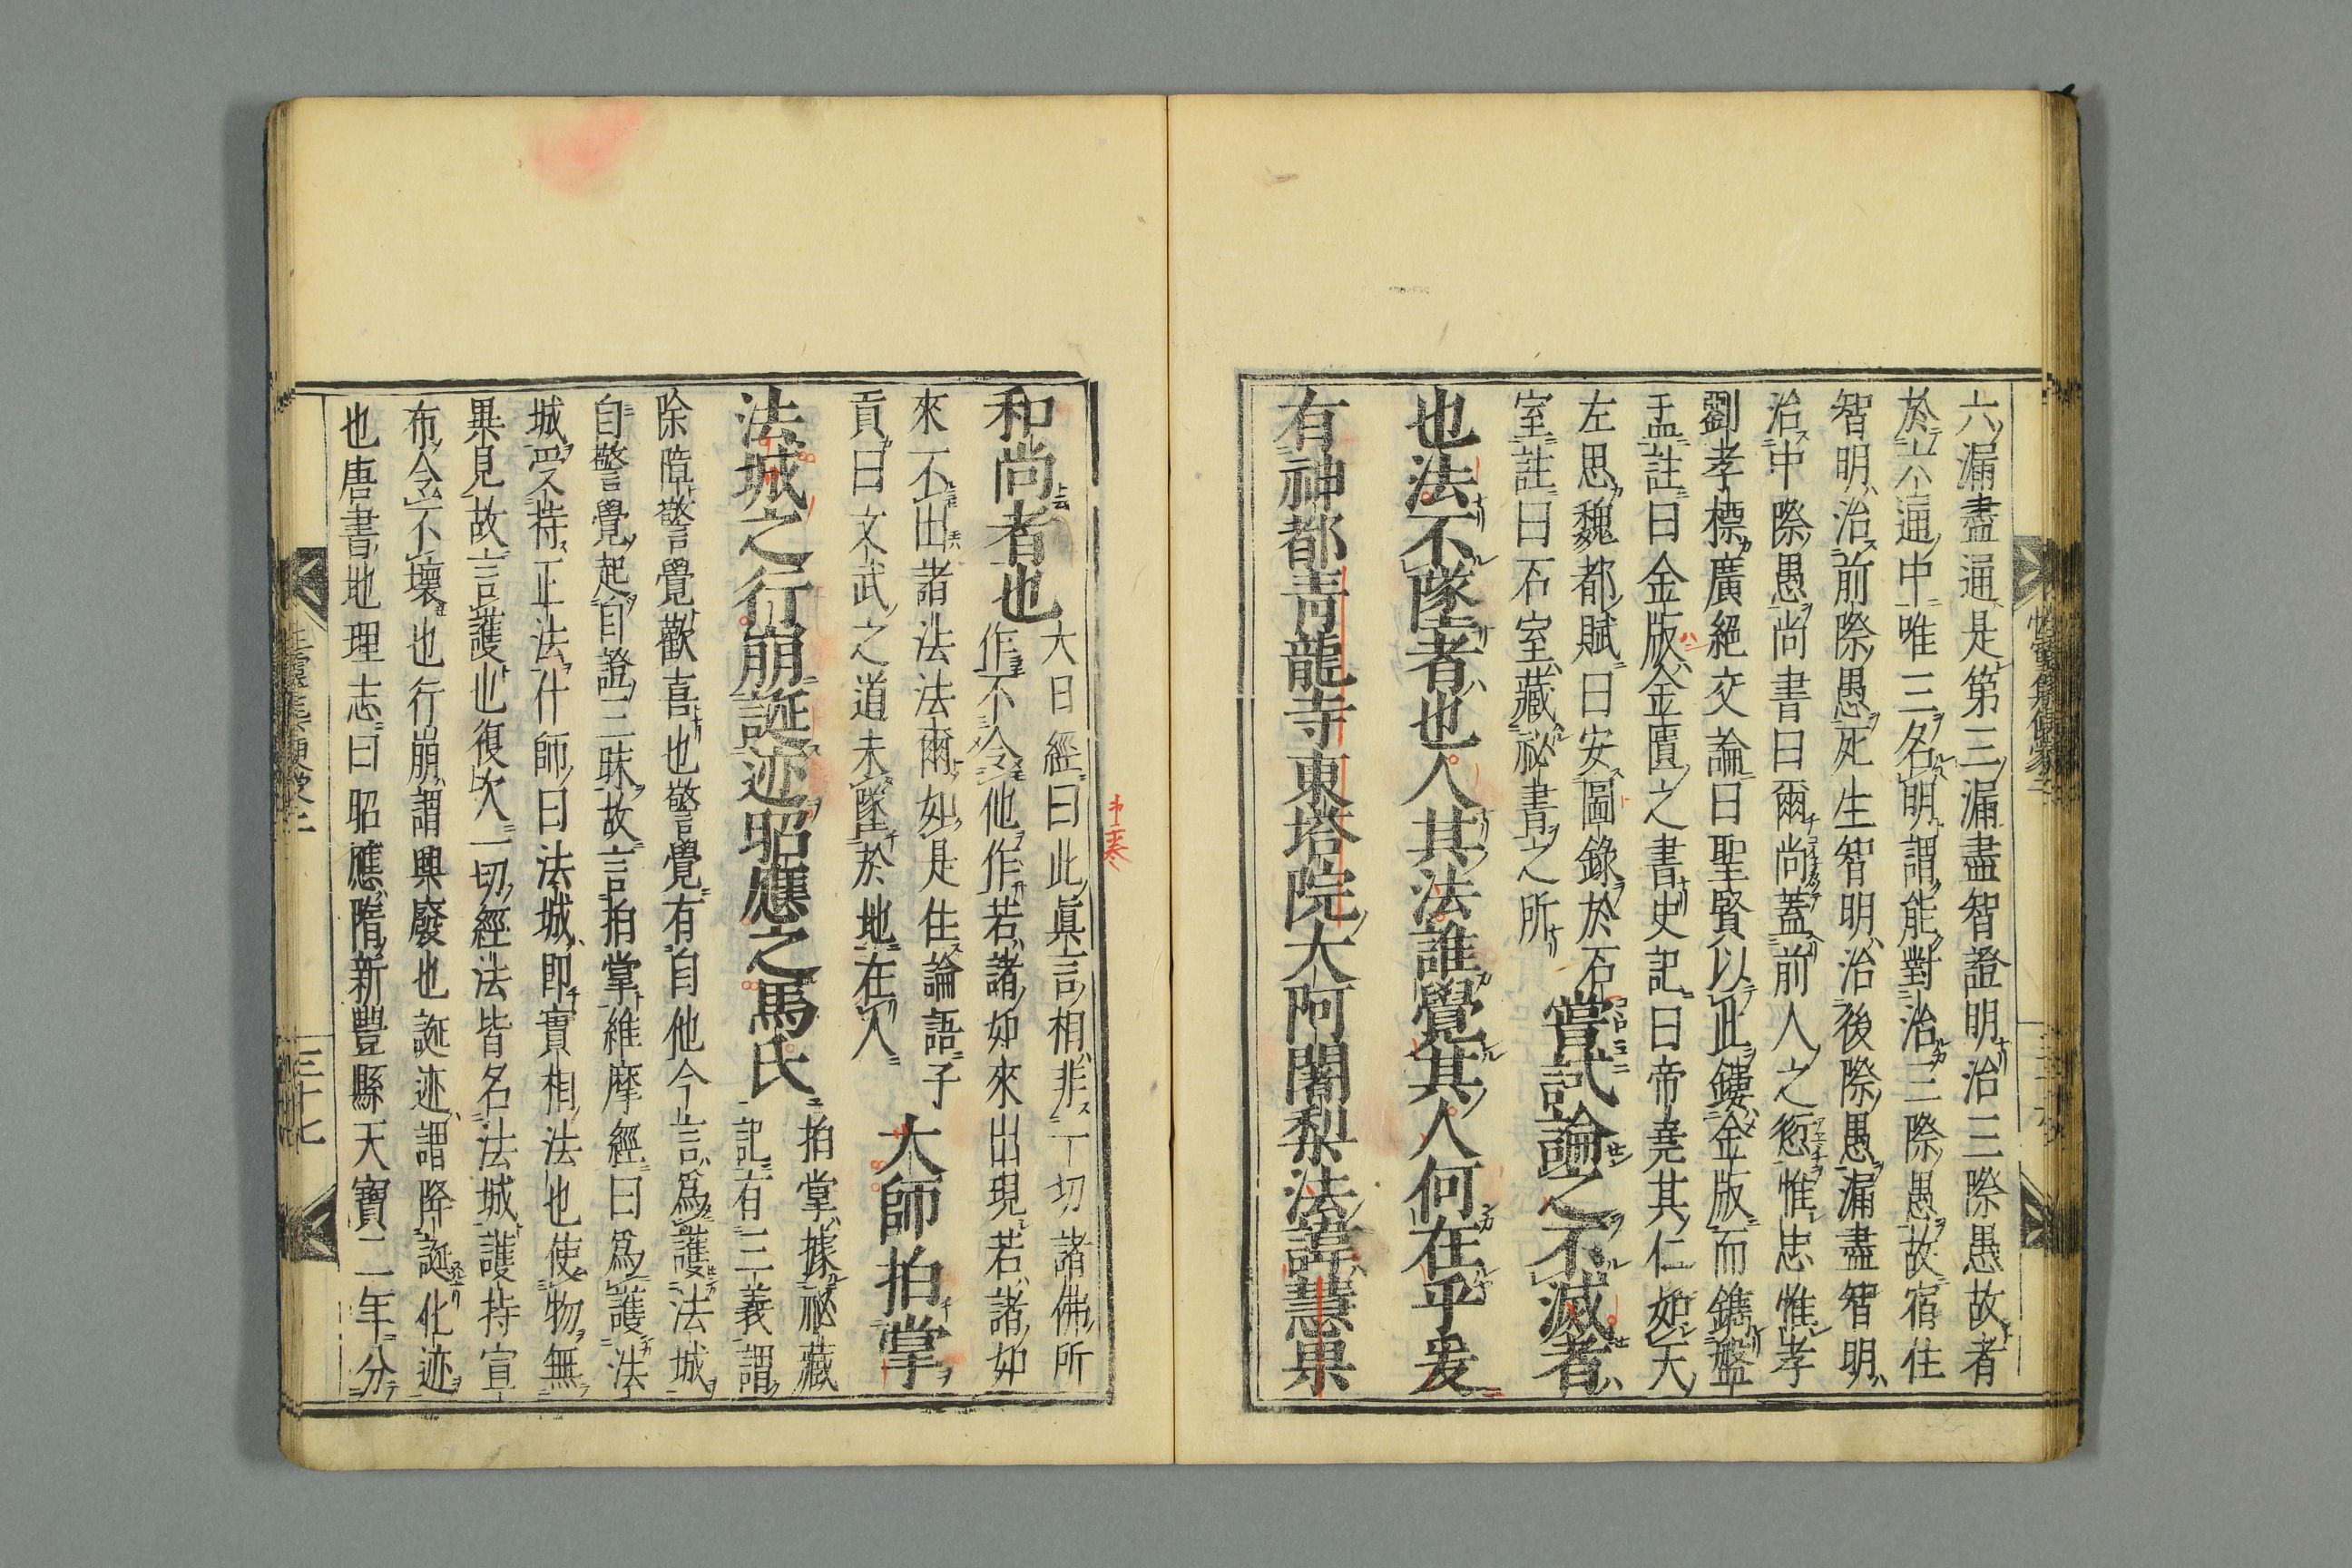 六漏盡通是第三漏盡智證明治三際愚故者
於六通中唯三名明謂能對治三際愚故宿住
智明治前際愚死生智明治後際愚漏盡智明
治中際愚尚書曰爾尚蓋前人之愆惟忠惟孝
劉孝標廣絕交論曰聖賢以此鏤金版而鐫盤
盂註曰金版金匱之書史記曰帝堯其仁如天
左思魏都賦曰安圖錄於石
室註曰石室藏祕書之所
嘗試論之不滅者
也法不墜者也人其法誰覺其人何在乎爰
有神都青龍寺東塔院大阿闍梨法諱慧果
和尚者也
大日經曰此眞言相非一切諸佛所
作不令他作若諸如來出現若諸如
來不出諸法法爾如是住論語子
貢曰文武之道未墜於地在人
大師拍掌
法城之行崩誕迹昭應之馬氏
拍掌據祕藏
記有三義謂
除障警覺歡喜也警覺有自他今言爲護法城
自警覺起自證三昧故言拍掌維摩經曰爲護法
城受持正法什師曰法城即實相法也使物無
異見故言護也復次一切經法皆名法城護持宣
布令不壞也行崩謂興廢也誕迹謂降誕化迹
也唐書地理志曰昭應隋新豐縣天寶二年分
三十七